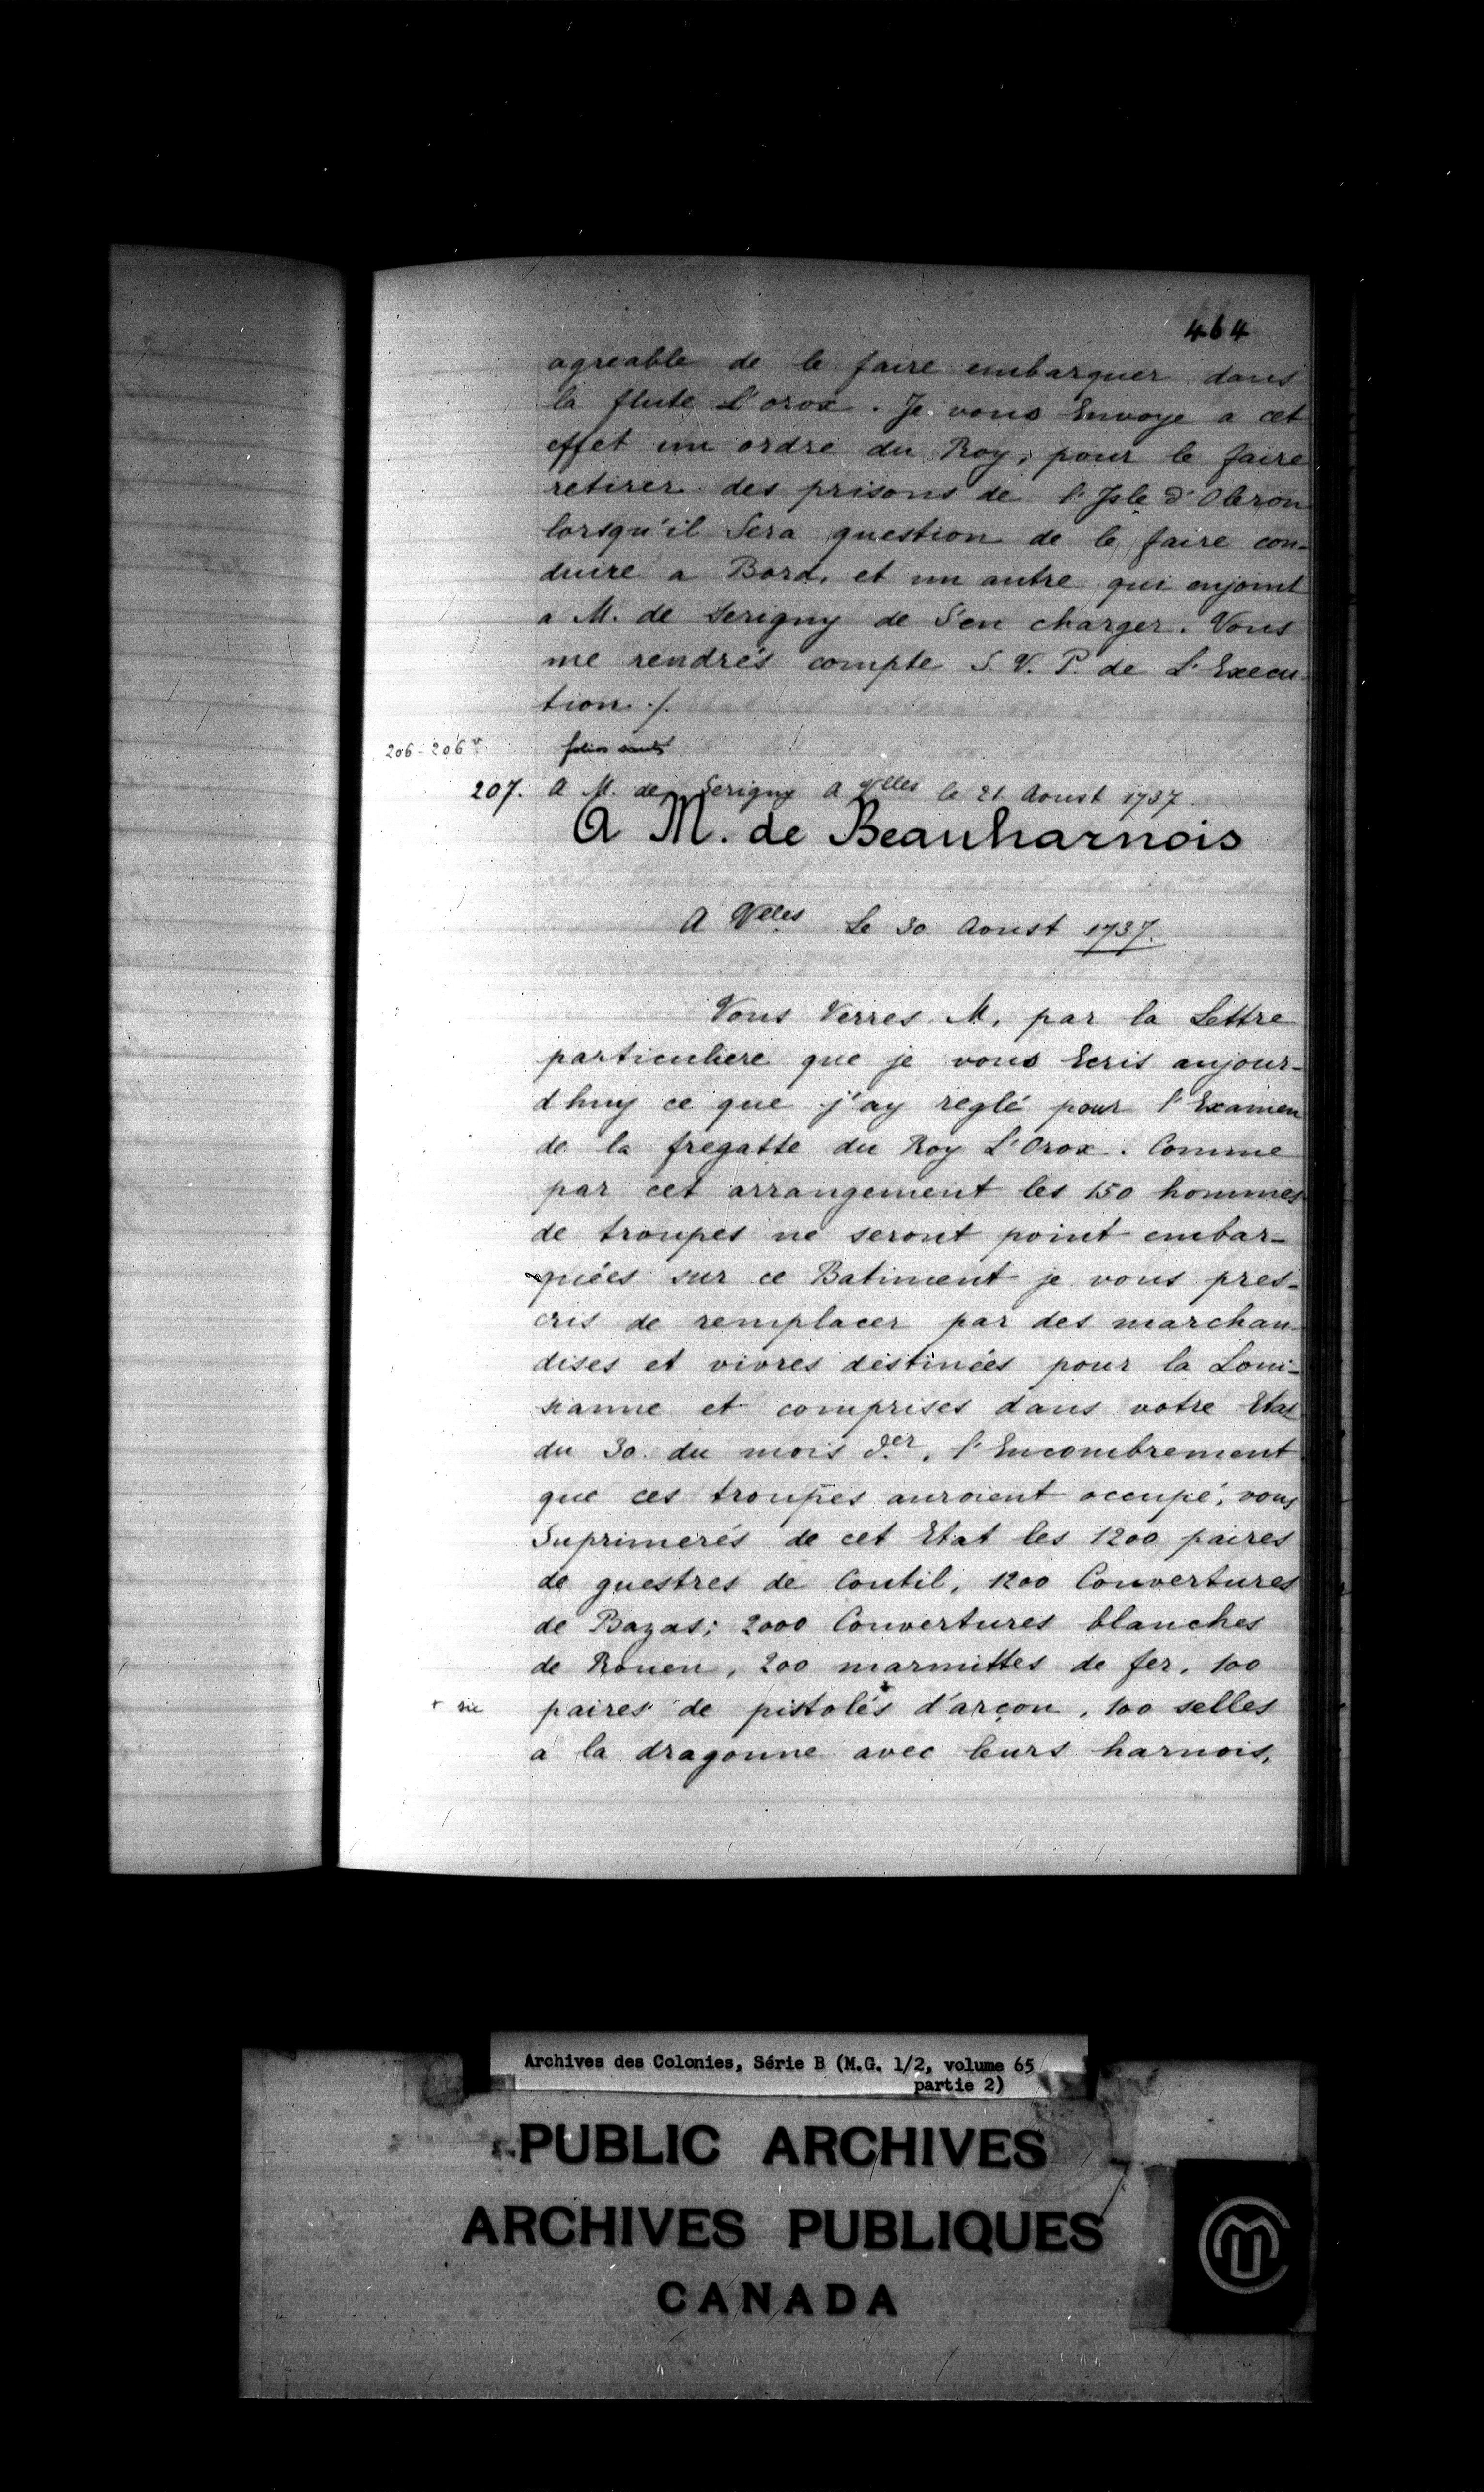 464
agreable de le faire embarquer dans
la flute L'orox. Je vous Envoye a cet
effet un ordre du Roy, pour le faire
retirer des prisons de l'Isle d'Oleron
lorsqu'il Sera question de le faire con-
duire a Bord, et un autre qui enjoint
a M. de Serigny de S'en charger. Vous
me rendrés compte S. V. P. de L'Execu-
tion ./.
206-206v folios sautés
207. A M. de Serigny A Vlles le 21 Aoust 1737.
A M. de Beauharnois
A Vlles Le 30 Aoust 1737.
Vous Verres M. par la Lettre
particuliere que je vous Ecris aujour-
dhuy ce que j'ay reglé pour l'Examen
de la fregatte du Roy L'Orox. Comme
par cet arrangement les 150 hommes
de troupes ne seront point embar-
quées sur ce Batiment je vous pres-
cris de remplacer par des marchan-
dises et vivres destinées pour la Loui-
sianne et comprises dans votre Etat
du 30. du mois d.er, l'Encombrement
que ces troupes auroient occupé, vous
Suprimerés de cet Etat les 1200 paires
de guestres de Coutil, 1200 Couvertures
de Bazas; 2000 Couvertures blanches
de Rouen, 200 marmittes de fer, 100
+ sic paires de pistolés + d'arçon, 100 selles
a la dragonne avec leurs harnois,
Archives des Colonies, Série B (M.G. 1/2, volume 65
partie 2)
PUBLIC ARCHIVES
ARCHIVES PUBLIQUES
CANADA